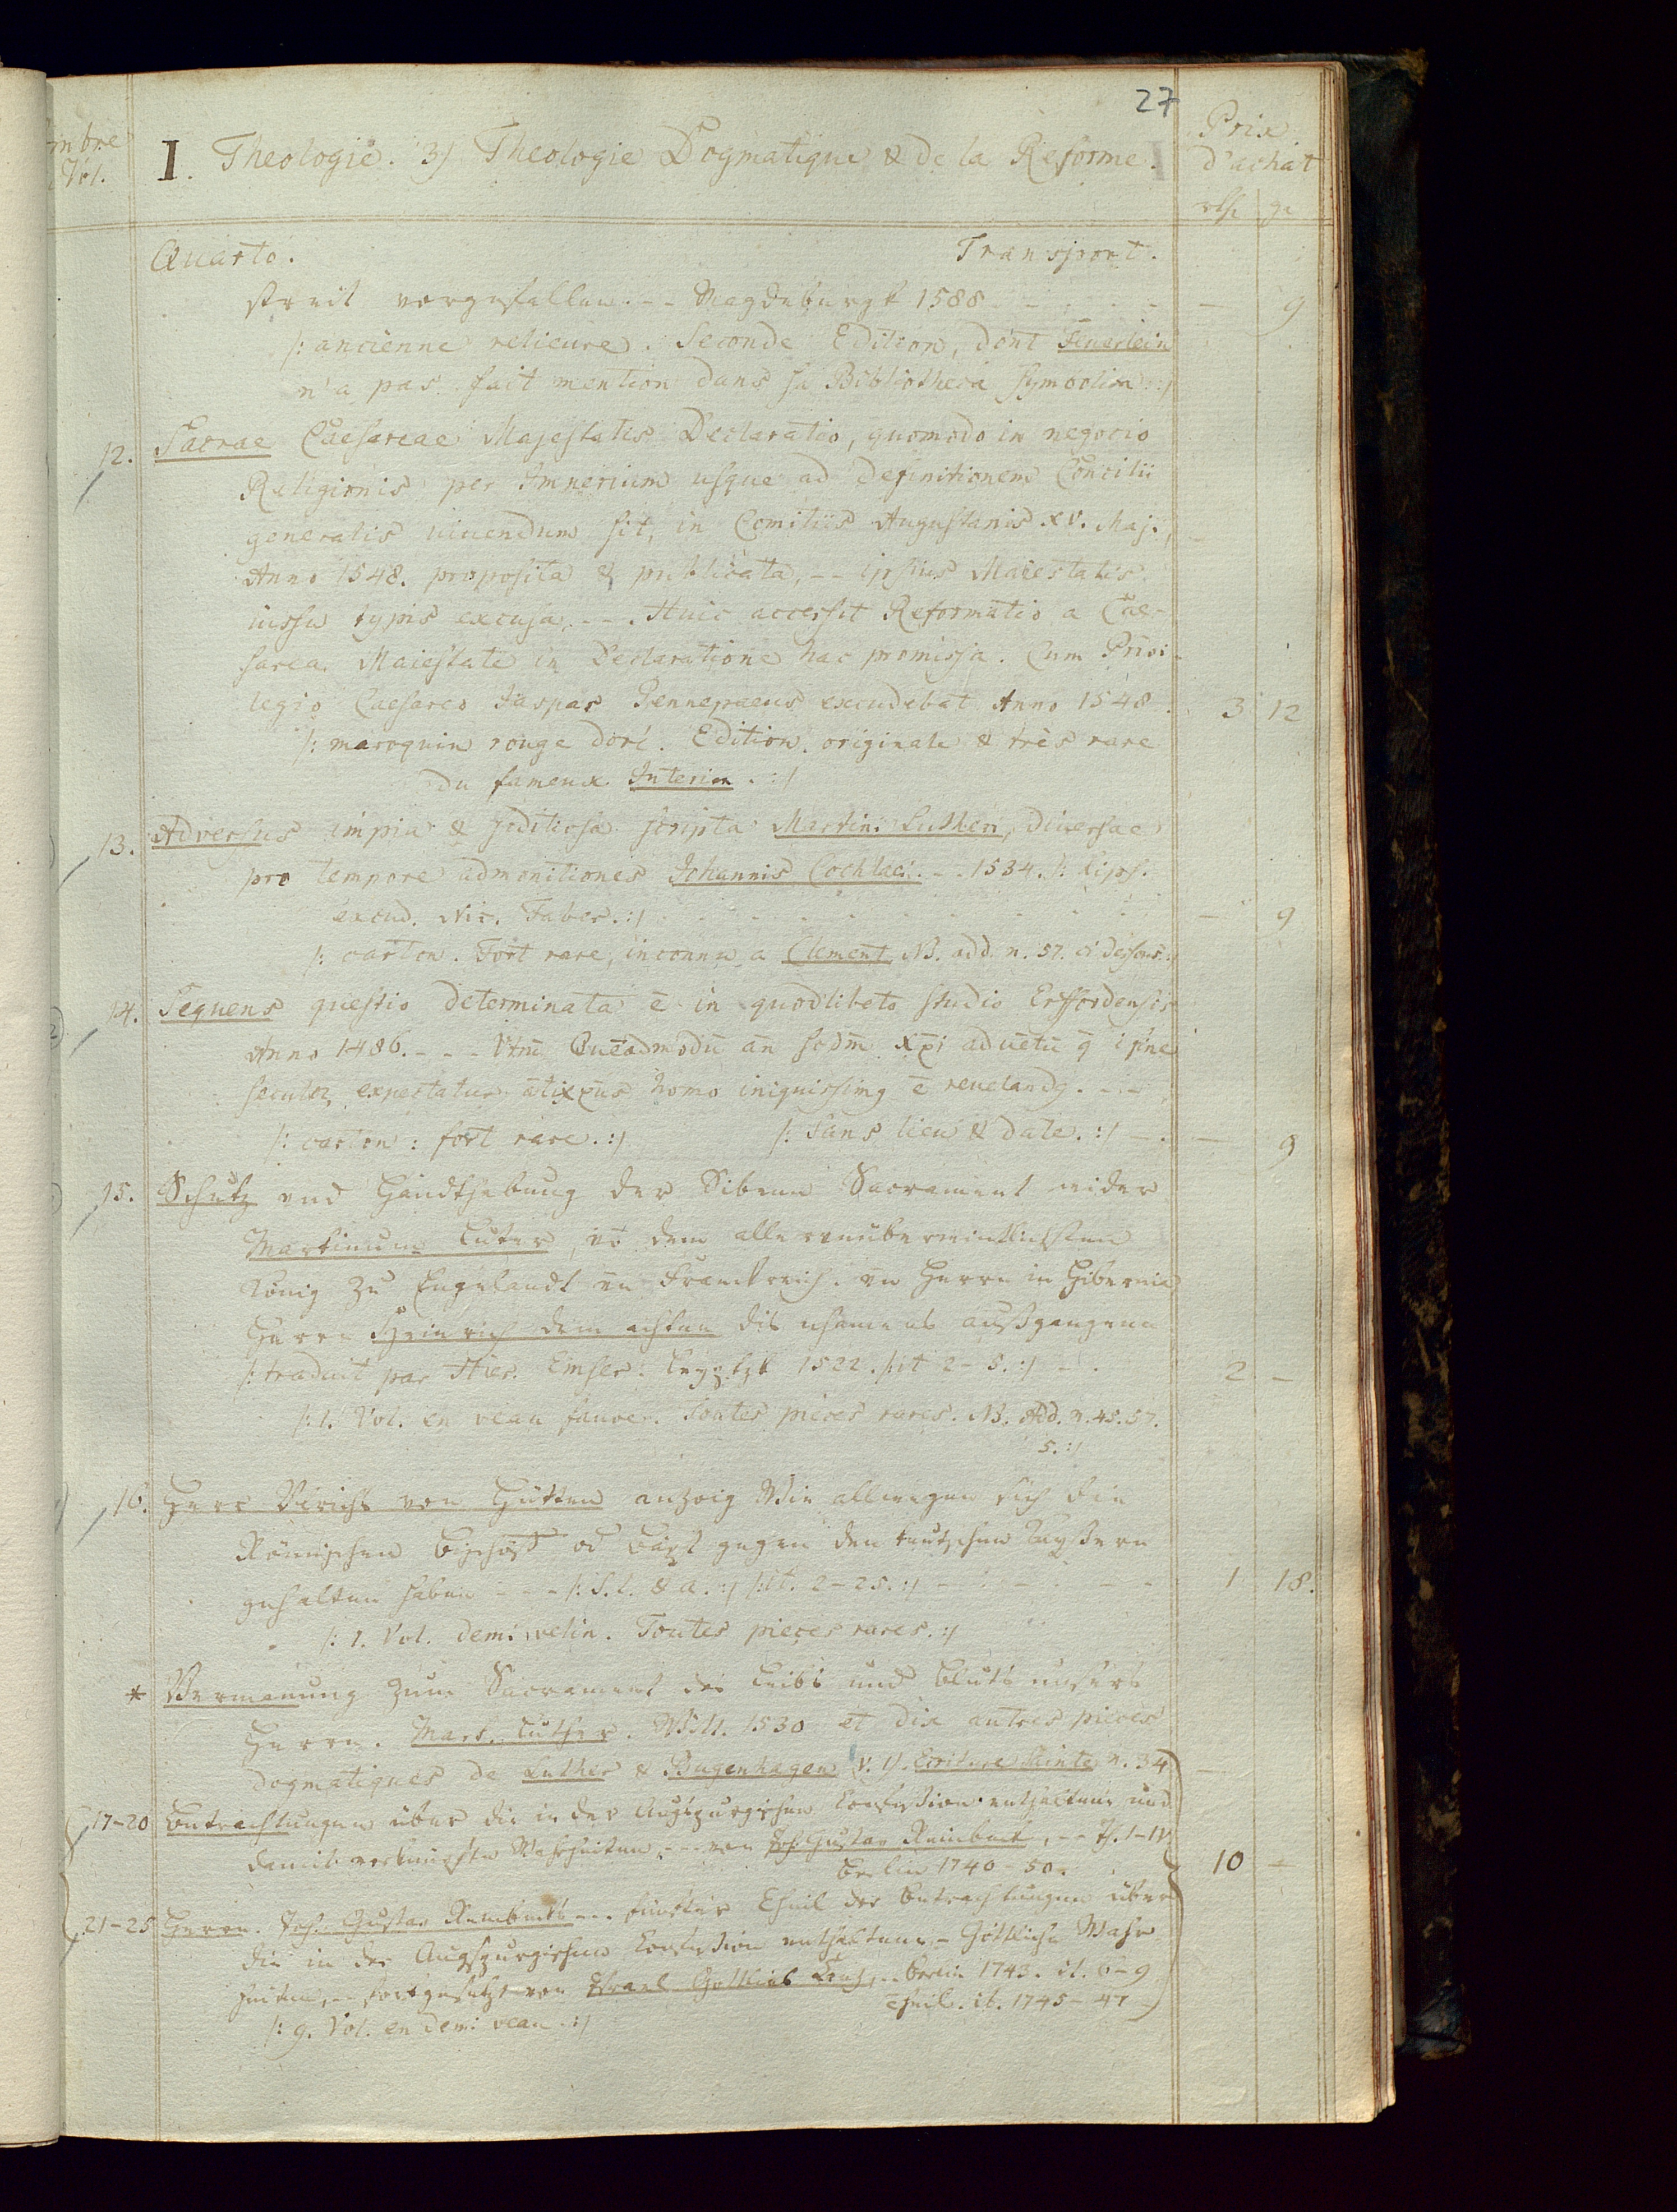 27
mbre
Vol.
I. Theologie. 3) Theologie Dogmatique & de la Reforme.
Prix
d'achat
rth. gr
Quarto. Transport.
streit vorgefallen. -- Magdeburgk 1588 - - - - - 9
/: ancienne relieure. Seconde Edition, dont Feuerlein
n'a pas fait mention dans sa Bibliotheca symbolica :/
12. Sacrae Caesareae Majestatis Declaratio, quomodo in negocio
Religionis per Imperium usque ad definitionem Concilii
generalis vivendum sit, in Comitiis Augustanis XV. Maj.,
Anno 1548. proposita & publicata, -- ipsius Maiestatis
iussu typis excusa, --. Huic accessit Reformatio a Cae-
sarea Maiestate in Declaratione hac promissa. Cum Privi-
legio Caesareo Iaspar Gennepaeus excudebat Anno 1548. 3 12
/: maroquin rouge doré. Edition originale & très rare
du fameux Interim. :/
13. Adversus impia & seditiosa scripta Martini Lutheri, diversae
pro tempore admonitiones Johannis Cochlaei. -- 1534. /: Lips.
excud. Nic. Faber. :/ - - - 9
/: carton. Fort rare, inconnu a Clement NB. add. n. 57. ci dessous :/
14. Sequens questio determinata ē in quodlibeto studio Erffordensis
Anno 1486. - - - Vtrū Quēadmodū an scdm xpi aduētū q̄ i fine
seculoꝝ expectatur ātixp̄us homo iniquissimꝰ ē reuelandꝰ. --
/: carton: fort rare. :/ /: Sans lieu & date. :/ - - 9
15. Schutz vnd Handthabung der Siben Sacrament wider
Martinum Luter, vō dem aller vnüberwintlichsten
König zu Engelandt vn Franckreich. vn Herrn in Hibernia
Herrn Heinrich dem achten dis nhamens außgangenn
/: traduit par Hier. Emser. Leyptzk 1522. /: it 2-5. :/ - . 2 -
/: 1. Vol. en veau fauve. Toutes pieces rares. NB. Add. n. 45. 57.
5. :/
16. Herr Vlrichs von Hutten anzoig Wie allwegen sich die
Römischen Bischöff od Bäpst gegen den teutschen Kayßeren
gehalten haben - - - /: S. l. & a. :/ /: it. 2-25. :/ - - - - 1 18.
/: 1. Vol. demi velin. Toutes pieces rares. :/
* Vermanung zum Sacrament des Leibs und Bluts unsers
Herrn. Mart. Luther. Witt. 1530 et dix autres pieces
dogmatiques de Luther & Bugenhagen (v. 1). Ecriture Sainte n. 34)
17-20 Betrachtungen über die in der Augspurgischen Confession enthaltene und
damit verknüpfte Wahrheiten, --- von Joh. Gustav Reinbeck, -- Th. I-IV
Berlin 1740-50. 10 -
21-25 Herrn. Joh. Gustav Reinbecks --- fünfter Theil der Betrachtungen über
die in der Augspurgischen Confession enthaltene - Göttliche Wahr
heiten, -- fortgesetzt von Israel Gottlieb Canz, -- Berlin 1743. it. 6-9
Theil. ib. 1745-47
/: 9. Vol. en demi veau. :/